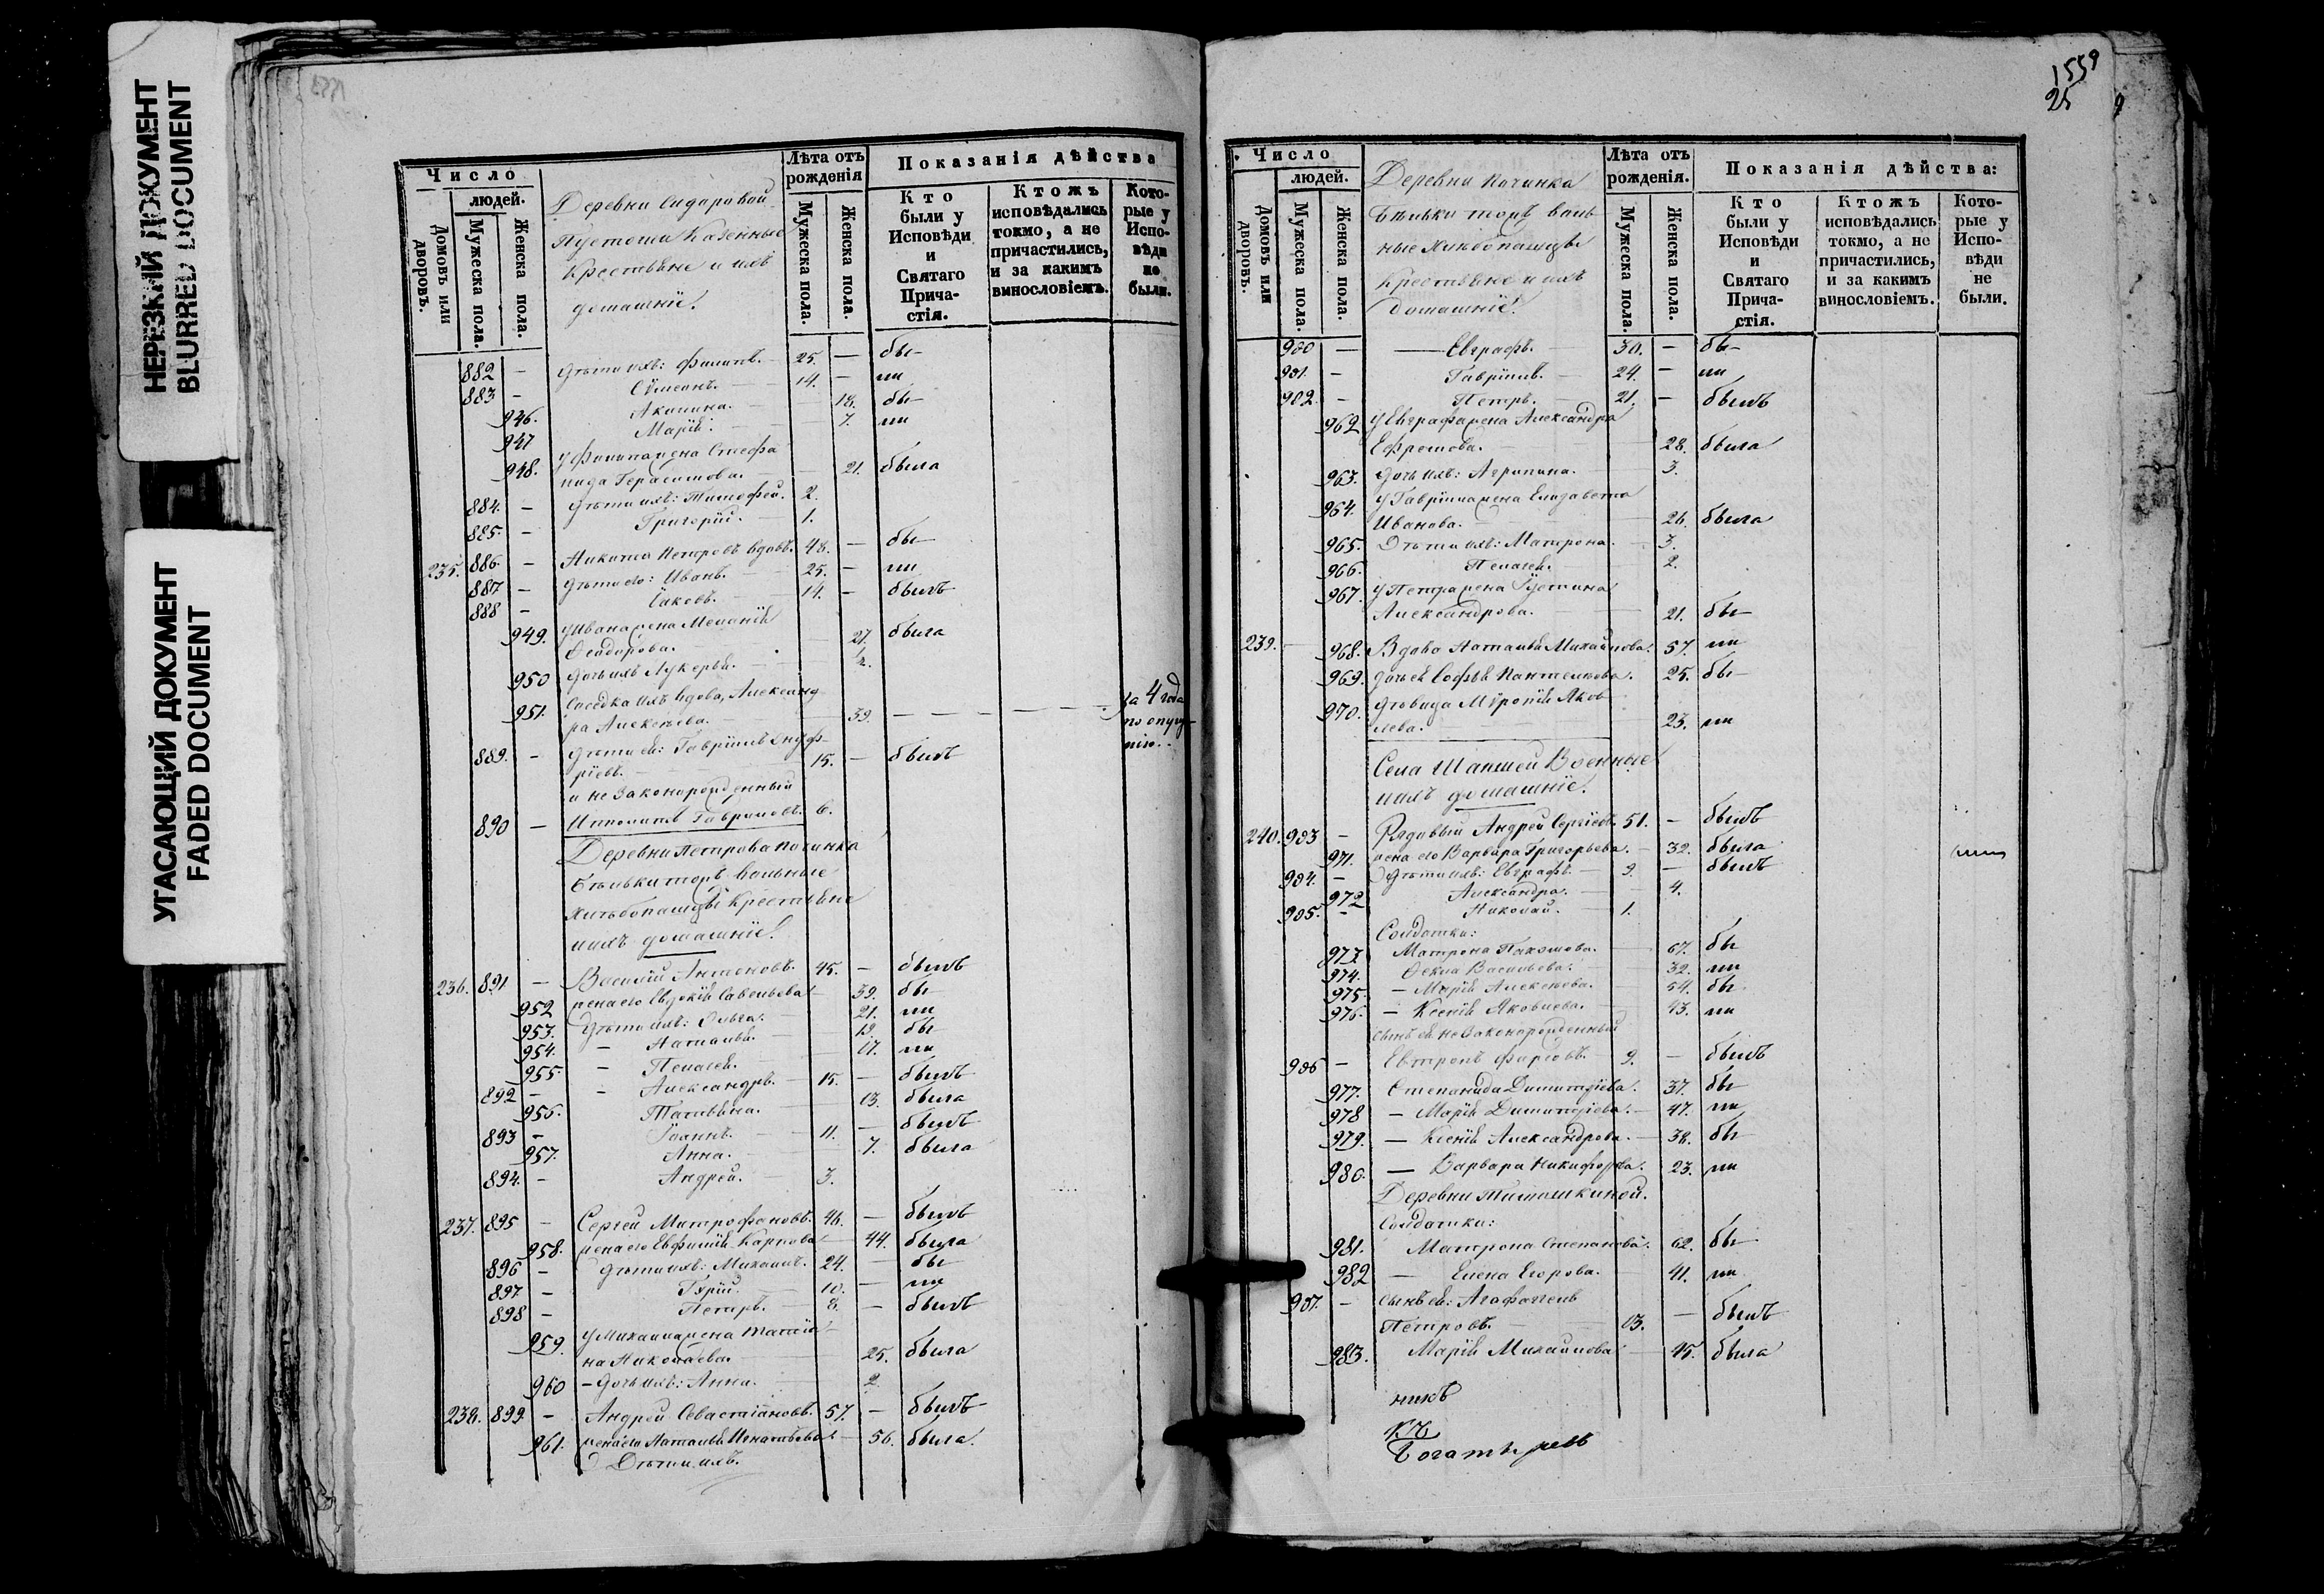 НЕРЕЗКИЙ ДОКУМЕНТ
BLURRED DOCUMENT
УГАСАЮЩИЙ ДОКУМЕНТ
FADED DOCUMENT
Число
людей.
Домовъ или дворовъ.
Мужеска пола.
Женска пола.
Деревни Сидоровой
Пустоши Казенные
Крестьяне и ихъ
домашніе.
Лѣта отъ рожденія
Мужеска пола.
Женска пола.
Показанія дѣйства
Кто были у Исповѣди и Святаго Причастія.
Ктожъ исповѣдались токмо, а не причастились, и за какимъ винословіемъ.
Которые у Исповѣди не были.
882 – Дѣти ихъ: Филиппъ. 25. – бы–
883 – Сѵмеонъ. 14. – ли
946. Акилина. – 18. бы–
947 Марія. – 7. ли
948. У Филиппа жена Стефа
нида Герасимова. – 21. была
884. – Дѣти ихъ: Тимофей. 2.
885. – Григорій. 1.
235. 886. – Никита Петровъ вдовъ. 48. – бы–
887 – Дѣти его: Иванъ. 25. – ли
888 – Іаковъ. 14. – былъ
949. У Ивана жена Меланія
Ѳеодорова. – 27. была
950 Дочь ихъ Лукерья. ½.
951. Соседка ихъ вдова, Александ
ра Алексѣева. 39. – – – за 4 года
по опущенію.
889. – Дѣти ея: Гавріилъ Онуф
ріевъ. 15. – былъ
и незаконорожденный
890 – Ипполитъ Гавриловъ. 6.
Деревни Петрова Починка
Бѣльки торъ вольные
хлѣбопашцы Крестьяне
и ихъ домашніе.
236. 891 – Василій Антоновъ. 45. – былъ
952 жена его Евдокія Савельева 39. бы
953. Дѣти ихъ: Ольга. 21. ли
954. – Наталья. 19. бы
955. – Пелагея. 17. ли
892 – – Александръ. 15. – былъ
956. Татьяна. 13. была
893 – Іоаннъ. 11. – былъ
957. Анна. 7. была
894. – Андрей. 3.
237. 895 – Сергей Митрофановъ. 46. – былъ
958. жена его Евфимія Карпова 44. была
896 – Дѣти ихъ: Михаилъ. 24. – бы
897 – Гурій. 10. – ли
898 – Петръ. 8. – былъ
959. У Михаила жена Татія
на Николаева. 25. была
960 – Дочь ихъ: Анна. 2
238. 899 – Андрей Севастіановъ. 57. – былъ
961. жена его Наталья Игнатьева 56. была.
Дѣти ихъ.
1559
25
Число
людей.
Домовъ или дворовъ.
Мужеска пола.
Женска пола.
Деревни Починка
Бѣльки торъ воль
ные хлѣбопашцы
Крестьяне и ихъ
домашніе.
Лѣта отъ рожденія.
Мужеска пола.
Женска пола.
Показанія дѣйства:
Кто были у Исповѣди и Святаго Причастія.
Ктожъ исповѣдались токмо, а не причастились, и за какимъ винословіемъ.
Которые у Исповѣди не были.
900 – Евграфъ. 30. – бы–
901. – Гавріилъ. 24. – ли
902. – Петръ. 21. – былъ
962 У Евграфа жена Александра
Ефремова. 28. была
963. Дочь ихъ: Агрипина. 3.
964. У Гавріила жена Елизавета
Иванова. 26. была
965. Дѣти ихъ: Матрона. 3.
966. Пелагея. 2.
967. У Петра жена Іустина
Александрова. 21. бы
239. 968. Вдова Наталья Михайлова. 57. ли
969. Дочь ея Софья Пантелѣева. 25. бы–
970. Дѣвица Мѵропія Яков
лева. 23. ли
Села Шапшей Военные
и ихъ домашніе.
240. 903 – Рядовый Андрей Сергіевъ. 51. – былъ
971. жена его Варвара Григорьева. – 32. была
904. – Дѣти ихъ: Евграфъ. 9. – былъ
972 Александра. 4.
905. – Николай. 1.
Солдатки:
973 Матрона Пахомова. 67. бы
974. Ѳекла Васильева. 32. ли
975. – Марія Алексѣева. 54. бы
976. – Ксенія Яковлева. 43. ли
сынъ ея незаконорожденный
906 – Евтропъ Фирсовъ. 9. – былъ
977. Степанида Димитріева. 37. бы
978 – Марія Димитріева. 47. ли
979. – Ксенія Александрова. 38. бы
980. – Варвара Никифорова. 23. ли
Деревни Тимошкиной.
Солдатки:
981. Матрона Степанова. 62. бы
982 – Елена Егорова. 41. ли
907. – Сынъ ея: Агафангелъ
Петровъ. 13. – былъ
983. Марія Михайлова 45. была
никъ